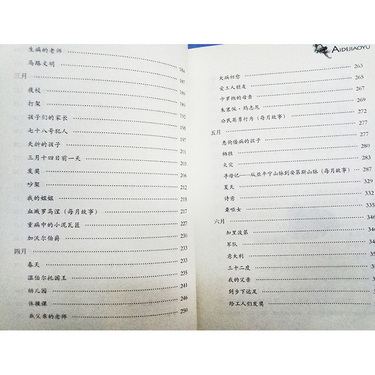 生病的老师
马路文明
三月
夜校 187
打架 189
孩子们的家长 191
七十八号犯人
夭折的孩子
三月十四日前一天
发奖
吵架
我的姐姐
血溅罗马涅（每月故事） 217
重病中的小泥瓦匠 227
加沃尔伯爵 230
四月 233
春天 235
温伯尔托国王
幼儿园 240
体操课 245
我父亲的老师 250
AIDEJIAOYU
大病初愈 263
爱工人朋友 265
卡罗纳的母亲 267
朱塞佩·玛志尼 269
公民英勇行为（每月故事） 272
五月 277
患佝偻病的孩子 277
牺牲
火灾
寻母记——从亚平宁山脉到安第斯山脉（每月故事） 287
夏天
诗意
聋哑女
六月
加里波第
军队
意大利
三十二度
我的父亲
到乡下远足
给工人们发奖